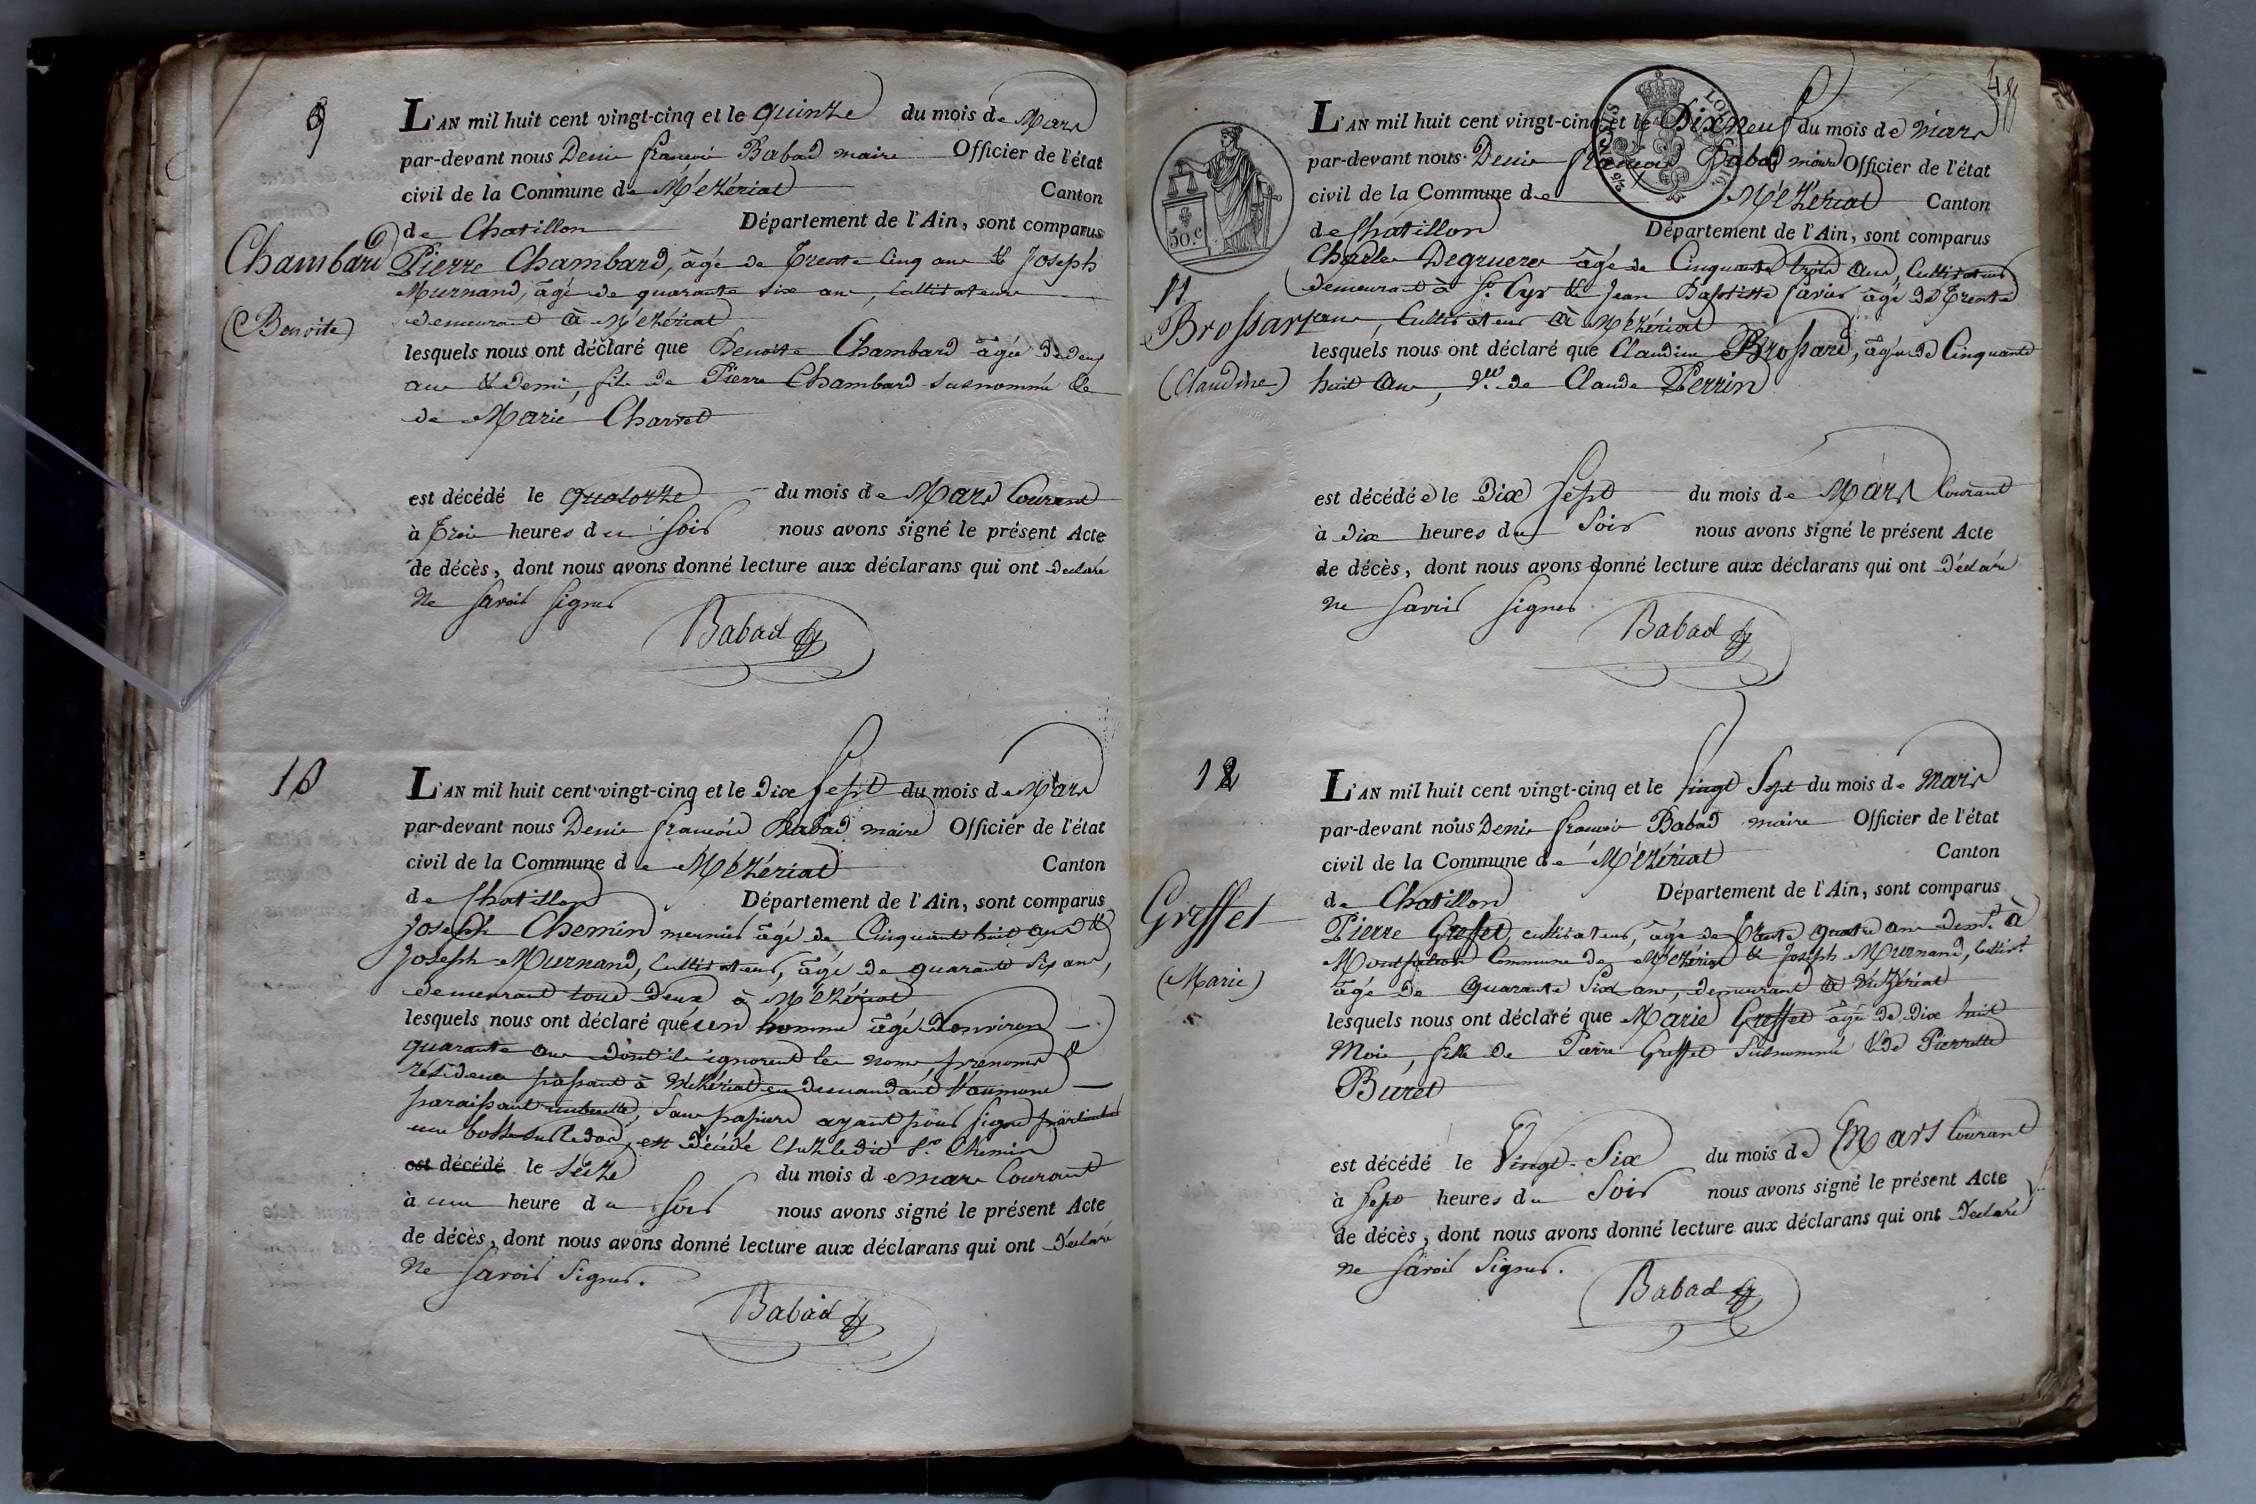 9
L'AN mil huit cent vingt-cinq et le quinze du mois de Mars
par-devant nous Denis françois Babad maire Officier de l'état
civil de la Commune de Mézériat Canton
de Chatillon Département de l'Ain, sont comparus
Chambard
Pierre Chambard, âgé de Trente Cinq ans & Joseph
Murnand, âgé de quarante six ans, Cultivateurs
(Benoite)
demeurant à Mézériat
lesquels nous ont déclaré que Benoite Chambard âgée de deux
ans & demi, fille de Pierre Chambard susnommé &
de Marie Charvet
est décédé le quatorze du mois de Mars Courant
à Trois heures du Soir nous avons signé le présent Acte
de décès, dont nous avons donné lecture aux déclarans qui ont déclaré
ne Savoir signer
Babad
10
L'AN mil huit cent vingt-cinq et le Dix Sept du mois de Mars
par-devant nous Denis françois Babad maire Officier de l'état
civil de la Commune de Mézériat Canton
de Chatillon Département de l'Ain, sont comparus
Joseph Chemin meunier âgé de Cinquante huit ans &
Joseph Murnand, Cultivateur, âgé de quarante Six ans,
demeurant tous deux à Mézériat
lesquels nous ont déclaré qu'un homme âgé d'environ
quarante ans dont ils ignorent les noms, prenoms &
résidence passant à Mézériat en demandant l'aumone
paraissant, Sans papiers ayant pour signe particulier
une bosse sur le dos, est décédé Chez ledit Sr. Chemin
est décédé le Seize du mois de mars Courant
à une heure du Soir nous avons signé le présent Acte
de décès, dont nous avons donné lecture aux déclarans qui ont déclaré
ne Savoir Signer.
Babad
48
L'AN mil huit cent vingt-cinq et le Dix neuf du mois de Mars
par-devant nous Denis françois Babad maire Officier de l'état
civil de la Commune de Mézériat Canton
de Chatillon Département de l'Ain, sont comparus
50.c
Charles Degruerer âgé de Cinquante trois ans, Cultivateur
demeurant à St. Cyr & Jean Baptiste âgé de Trente
11
Brossard
ans, Cultivateur à Mézériat
lesquels nous ont déclaré que Claudine Brossard, âgée de Cinquante
(Claudine)
huit ans, Ve. de Claude Perrin
est décédée le Dix Sept du mois de Mars Courant
à dix heures du Soir nous avons signé le présent Acte
de décès, dont nous avons donné lecture aux déclarans qui ont déclaré
ne Savoir signer
Babad
12
L'AN mil huit cent vingt-cinq et le Vingt Sept du mois de Mars
par-devant nous Denis françois Babad maire Officier de l'état
civil de la Commune de Mézériat Canton
de Chatillon Département de l'Ain, sont comparus
Greffet
Pierre Greffet, cultivateur, âgé de Trente quatre ans demt. à
Commune de Mézériat & Joseph Murnand, Cultivr.
(Marie)
âgé de quarante Six ans, demeurant à Mézériat
lesquels nous ont déclaré que Marie Greffet âgée de Dix huit
Mois, fille de Pierre Greffet Susnommé & de Pierrette
Buret
est décédé le Vingt-Six du mois de Mars Courant
à Sept heures du Soir nous avons signé le présent Acte
de décès, dont nous avons donné lecture aux déclarans qui ont déclaré
ne Savoir Signer.
Babad